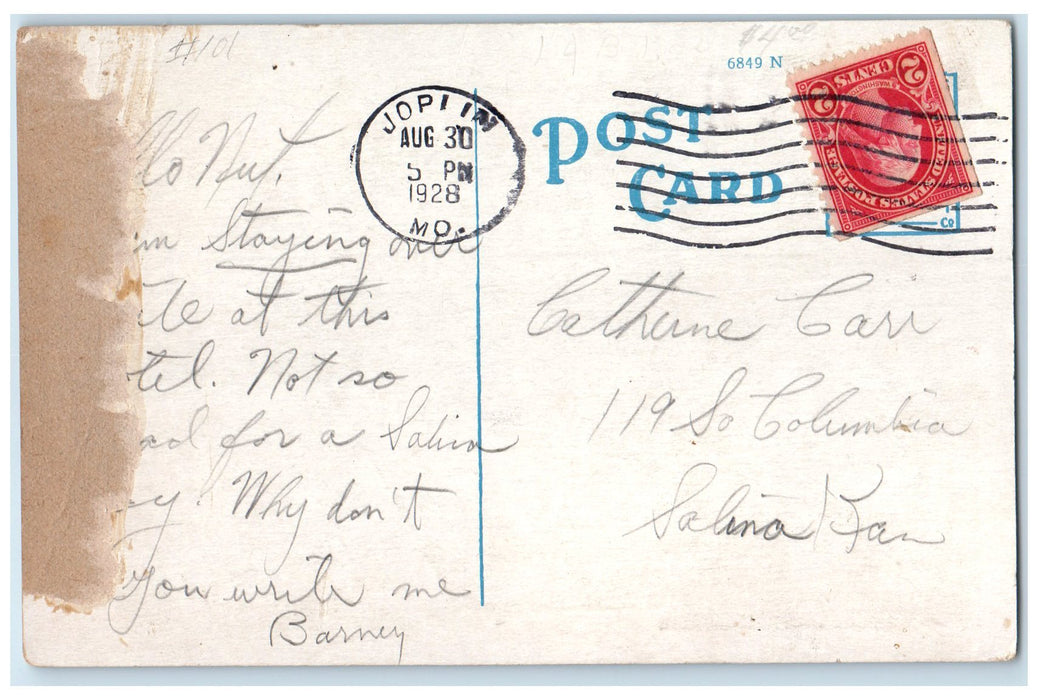 #101
$4.00
6849 N
POST
CARD
JOPLIN
AUG 30
5 PM
1928
MO.
2 CENTS 2
WASHINGTON
UNITED STATES POSTAGE
Co
lo Nut.
m Staying over
te at this
tel. Not so
ad for a Salina
y. Why don't
you write me
Barney
Catherine Carr
119 So Columbia
Salina Kan